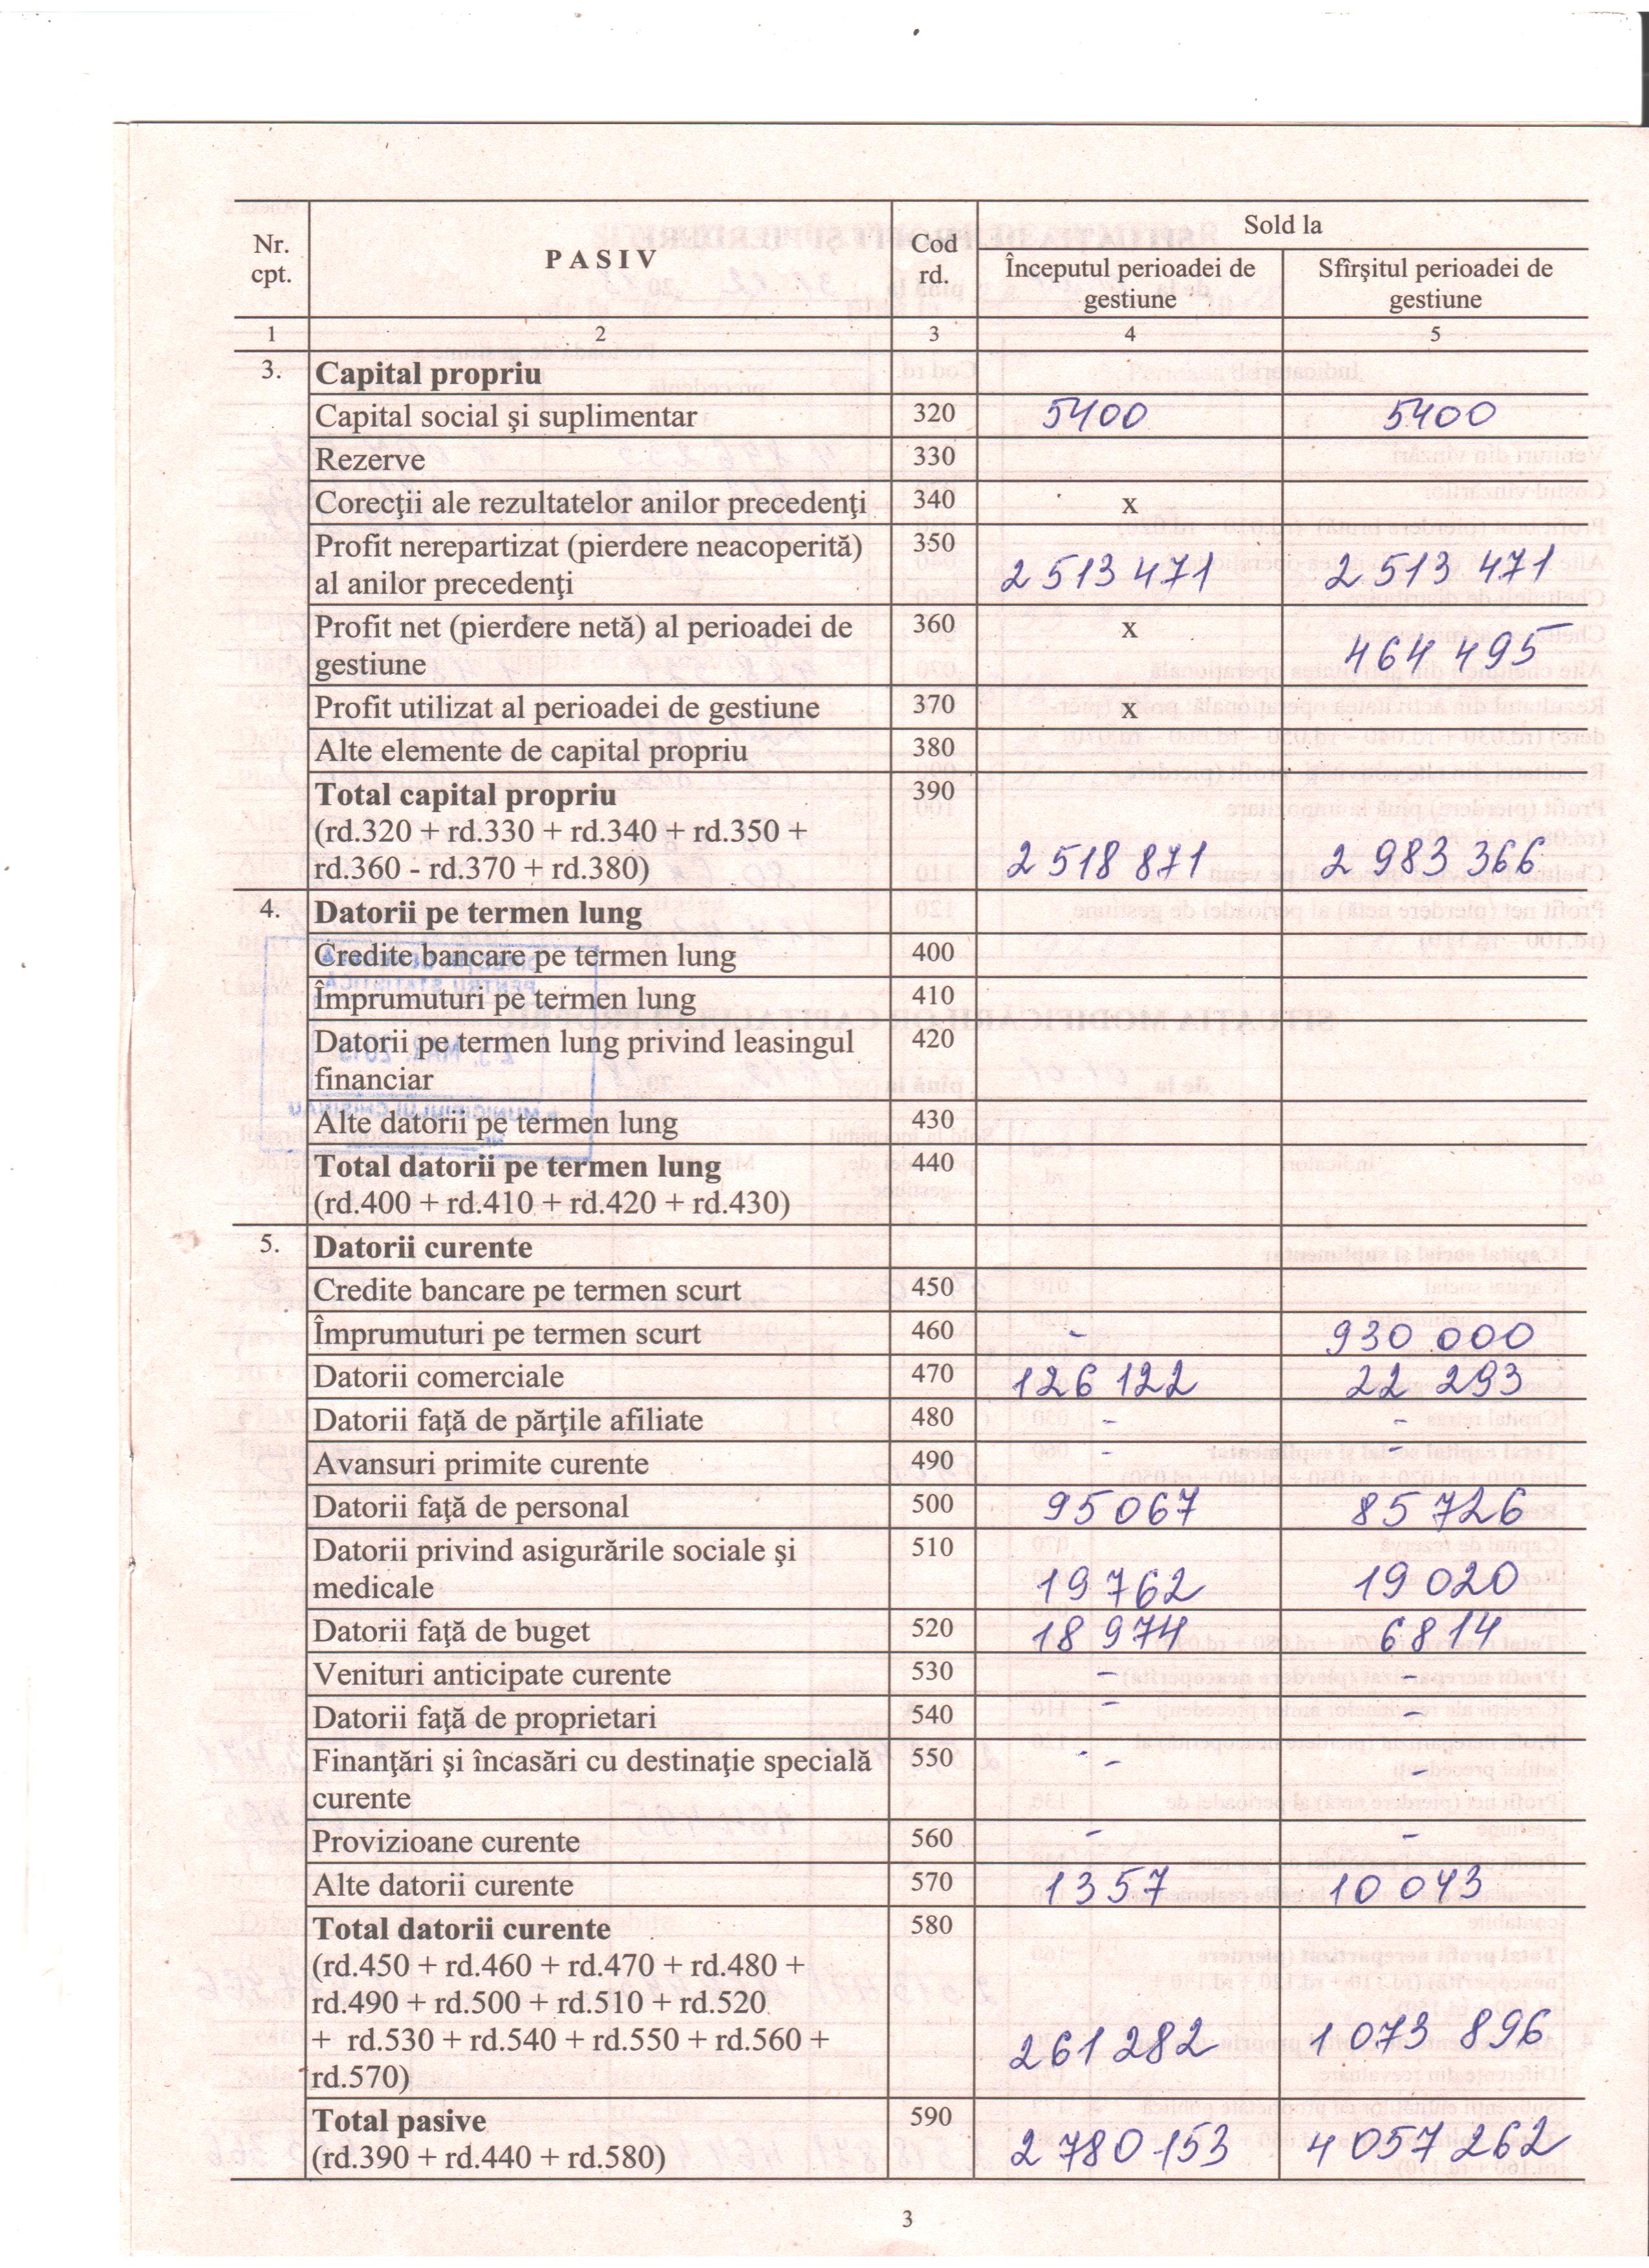 Nr. cpt.
P A S I V
Cod rd.
Sold la
Începutul perioadei de gestiune
Sfîrşitul perioadei de gestiune
1 2 3 4 5
3. Capital propriu
Capital social şi suplimentar 320 5400 5400
Rezerve 330
Corecţii ale rezultatelor anilor precedenţi 340 x
Profit nerepartizat (pierdere neacoperită) 350
al anilor precedenţi 2 513 471 2 513 471
Profit net (pierdere netă) al perioadei de 360 x
gestiune 464 495
Profit utilizat al perioadei de gestiune 370 x
Alte elemente de capital propriu 380
Total capital propriu 390
(rd.320 + rd.330 + rd.340 + rd.350 +
rd.360 - rd.370 + rd.380) 2 518 871 2 983 366
4. Datorii pe termen lung
Credite bancare pe termen lung 400
Împrumuturi pe termen lung 410
Datorii pe termen lung privind leasingul 420
financiar
Alte datorii pe termen lung 430
Total datorii pe termen lung 440
(rd.400 + rd.410 + rd.420 + rd.430)
5. Datorii curente
Credite bancare pe termen scurt 450
Împrumuturi pe termen scurt 460 - 930 000
Datorii comerciale 470 126 122 22 293
Datorii faţă de părţile afiliate 480 - -
Avansuri primite curente 490 - -
Datorii faţă de personal 500 95 067 85 726
Datorii privind asigurările sociale şi 510
medicale 19 762 19 020
Datorii faţă de buget 520 18 974 6 814
Venituri anticipate curente 530 - -
Datorii faţă de proprietari 540 - -
Finanţări şi încasări cu destinaţie specială 550 - -
curente
Provizioane curente 560 - -
Alte datorii curente 570 1357 10 043
Total datorii curente 580
(rd.450 + rd.460 + rd.470 + rd.480 +
rd.490 + rd.500 + rd.510 + rd.520
+ rd.530 + rd.540 + rd.550 + rd.560 +
rd.570) 261 282 1 073 896
Total pasive 590
(rd.390 + rd.440 + rd.580) 2 780 153 4 057 262
3